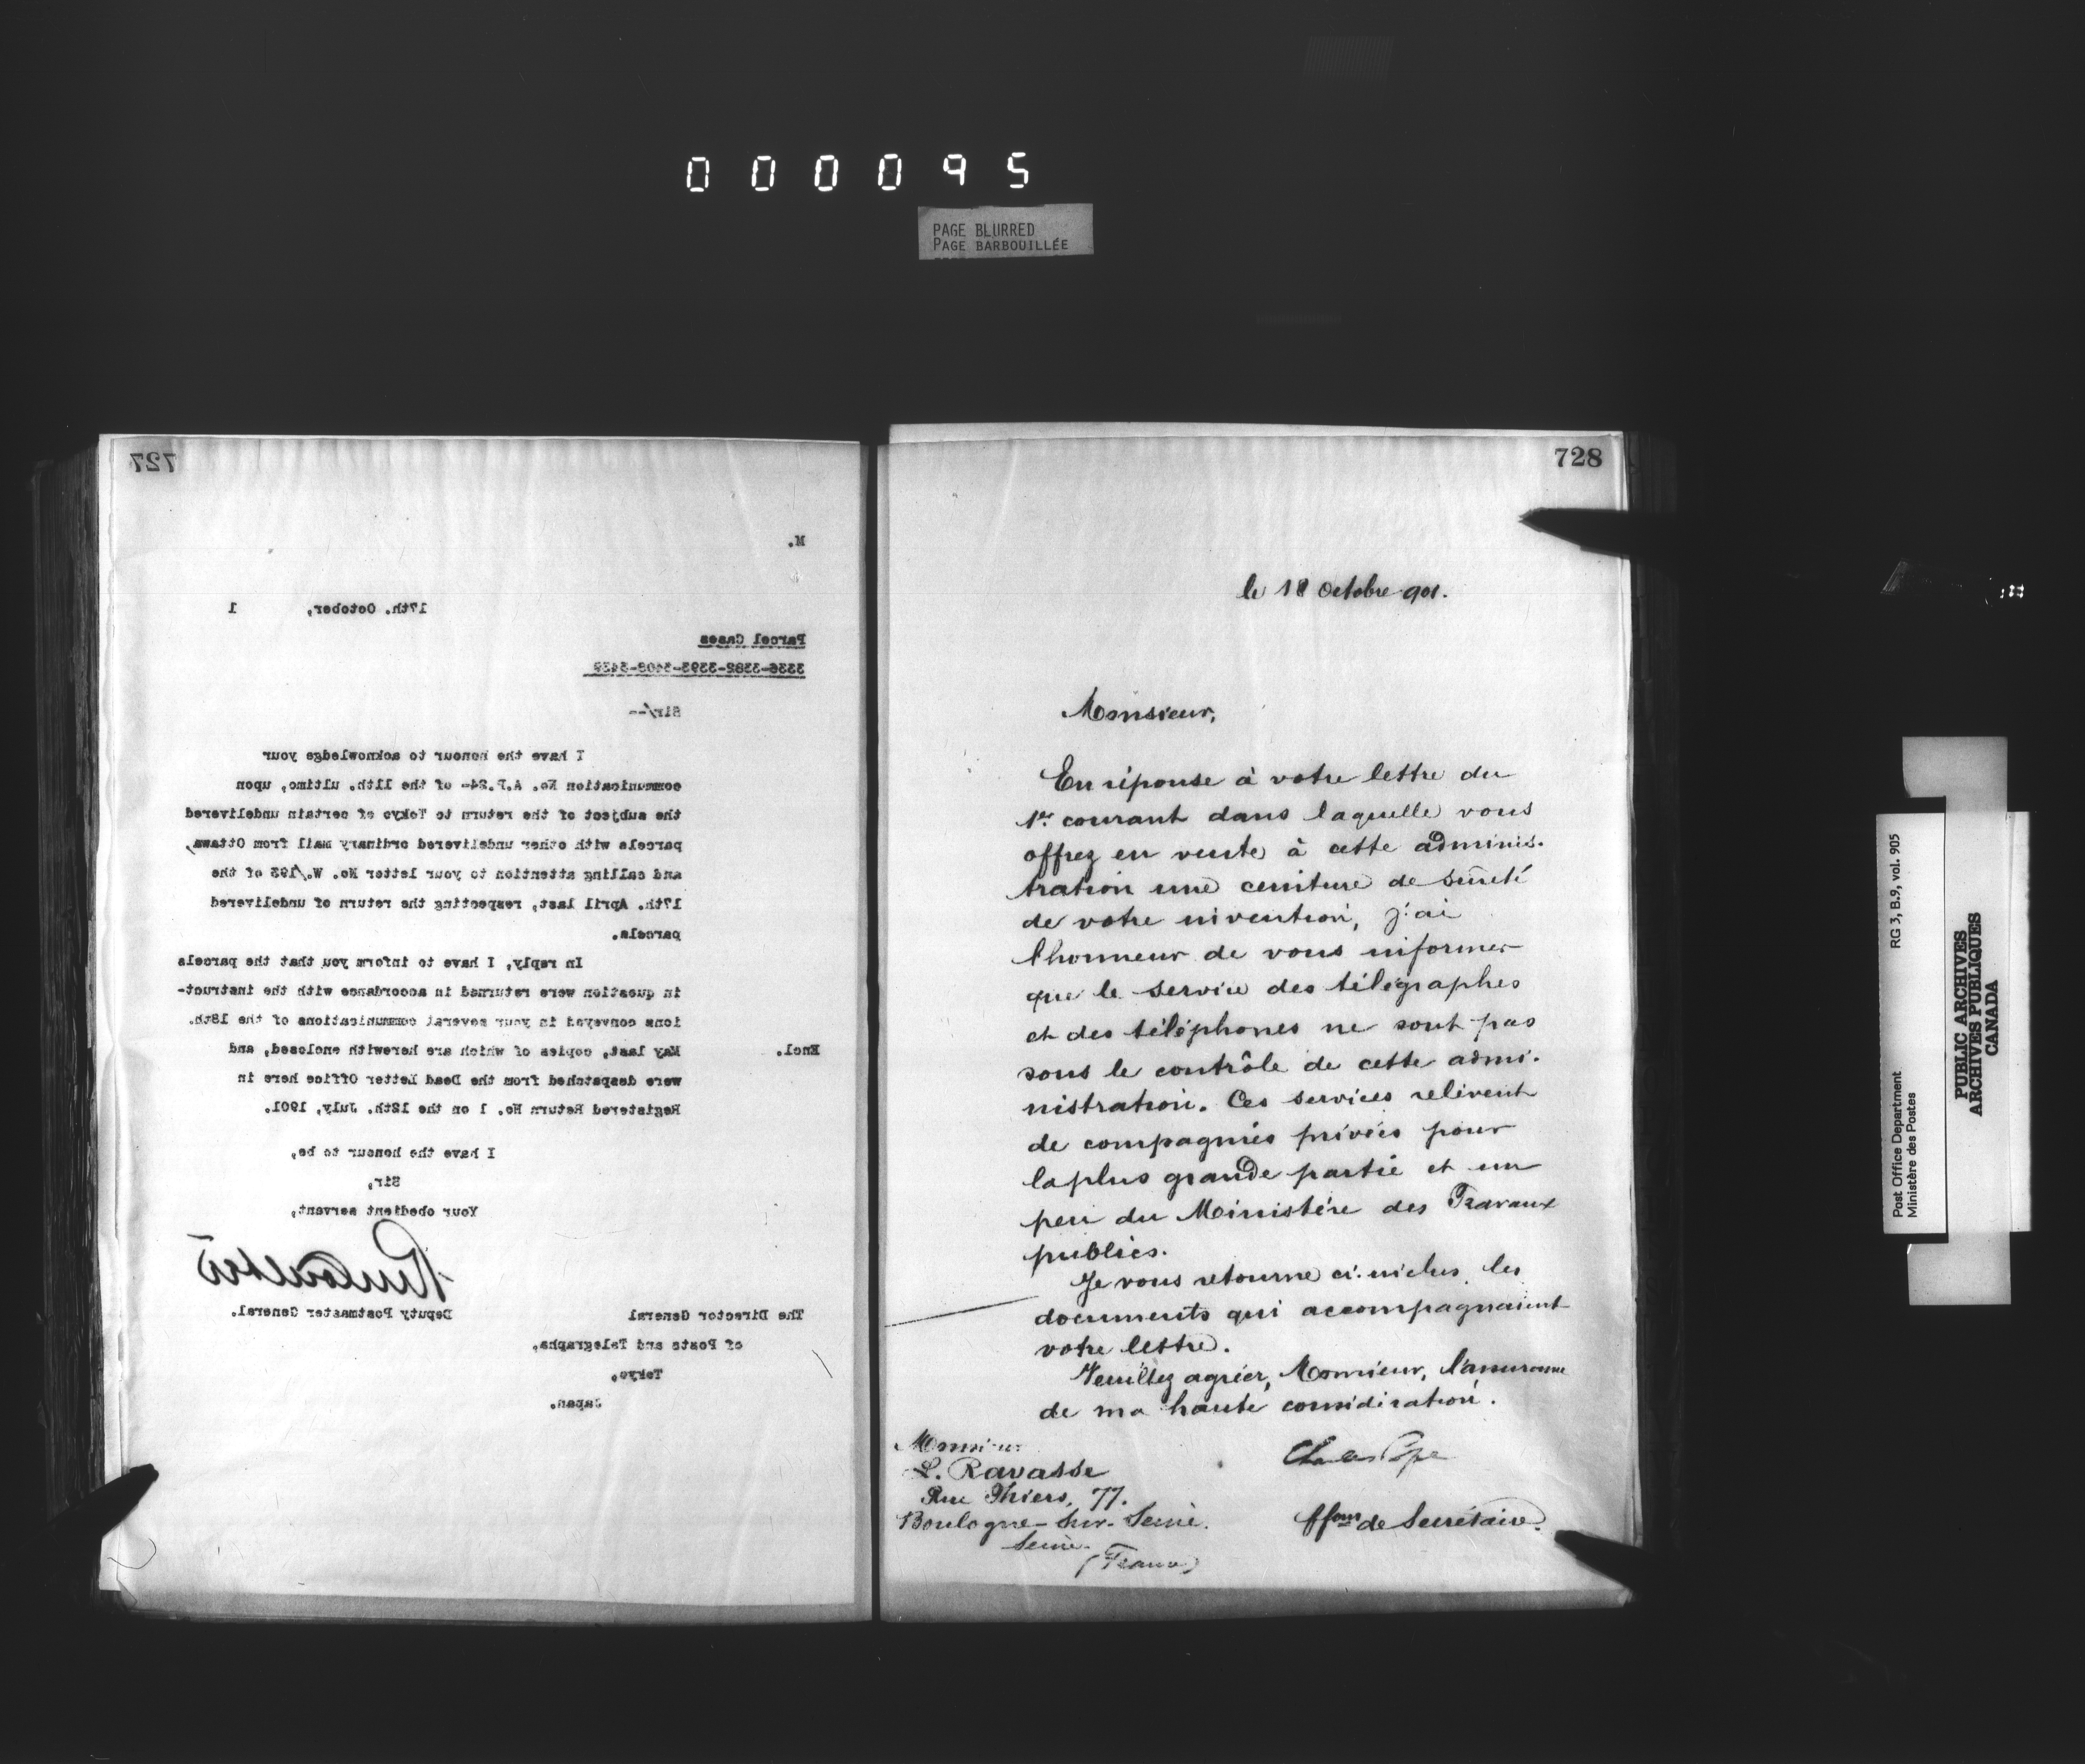 000095
PAGE BLURRED
PAGE BARBOUILLÉE
727
M.
17th. October, 1
Parcel Cases
3336-3382-3393-3408-3439
Sir/--
I have the honour to acknowledge your
communication No. A.P.24- of the 11th. ultimo, upon
the subject of the return to Tokyo of certain undelivered
parcels with other undelivered ordinary mail from Ottawa,
and calling attention to your letter No. W./193 of the
17th. April last, respecting the return of undelivered
parcels.
In reply, I have to inform you that the parcels
in question were returned in accordance with the instruct-
ions conveyed in your several communications of the 18th.
Encl. May last, copies of which are herewith enclosed, and
were despatched from the Dead Letter Office here in
Registered Return No. 1 on the 12th. July, 1901.
I have the honour to be,
Sir,
Your obedient servant,
Deputy Postmaster General.
The Director General
of Posts and Telegraphs,
Tokyo,
Japan.
728
le 18 Octobre 901.
Monsieur,
En réponse à votre lettre du
1er courant dans laquelle vous
offrez en vente à cette adminis-
tration une ceinture de sûreté
de votre invention, j'ai
l'honneur de vous informer
que le service des télégraphes
et des téléphones ne sont pas
sous le contrôle de cette admi-
nistration. Ces services relèvent
de compagnies privées pour
la plus grande partie et un
peu du Ministère des Travaux
publics.
Je vous retourne ci-inclus les
documents qui accompagnaient
votre lettre.
Veuillez agréer, Monsieur, l'assurance
de ma haute considération.
Monsieur
L. Ravasse
Rue Thiers, 77.
Boulogne-sur-Seine.
Seine.
(France)
Charles Pope
ffons de Secrétaire.
Post Office Department
Ministère des Postes
RG 3, B.9, vol. 905
PUBLIC ARCHIVES
ARCHIVES PUBLIQUES
CANADA